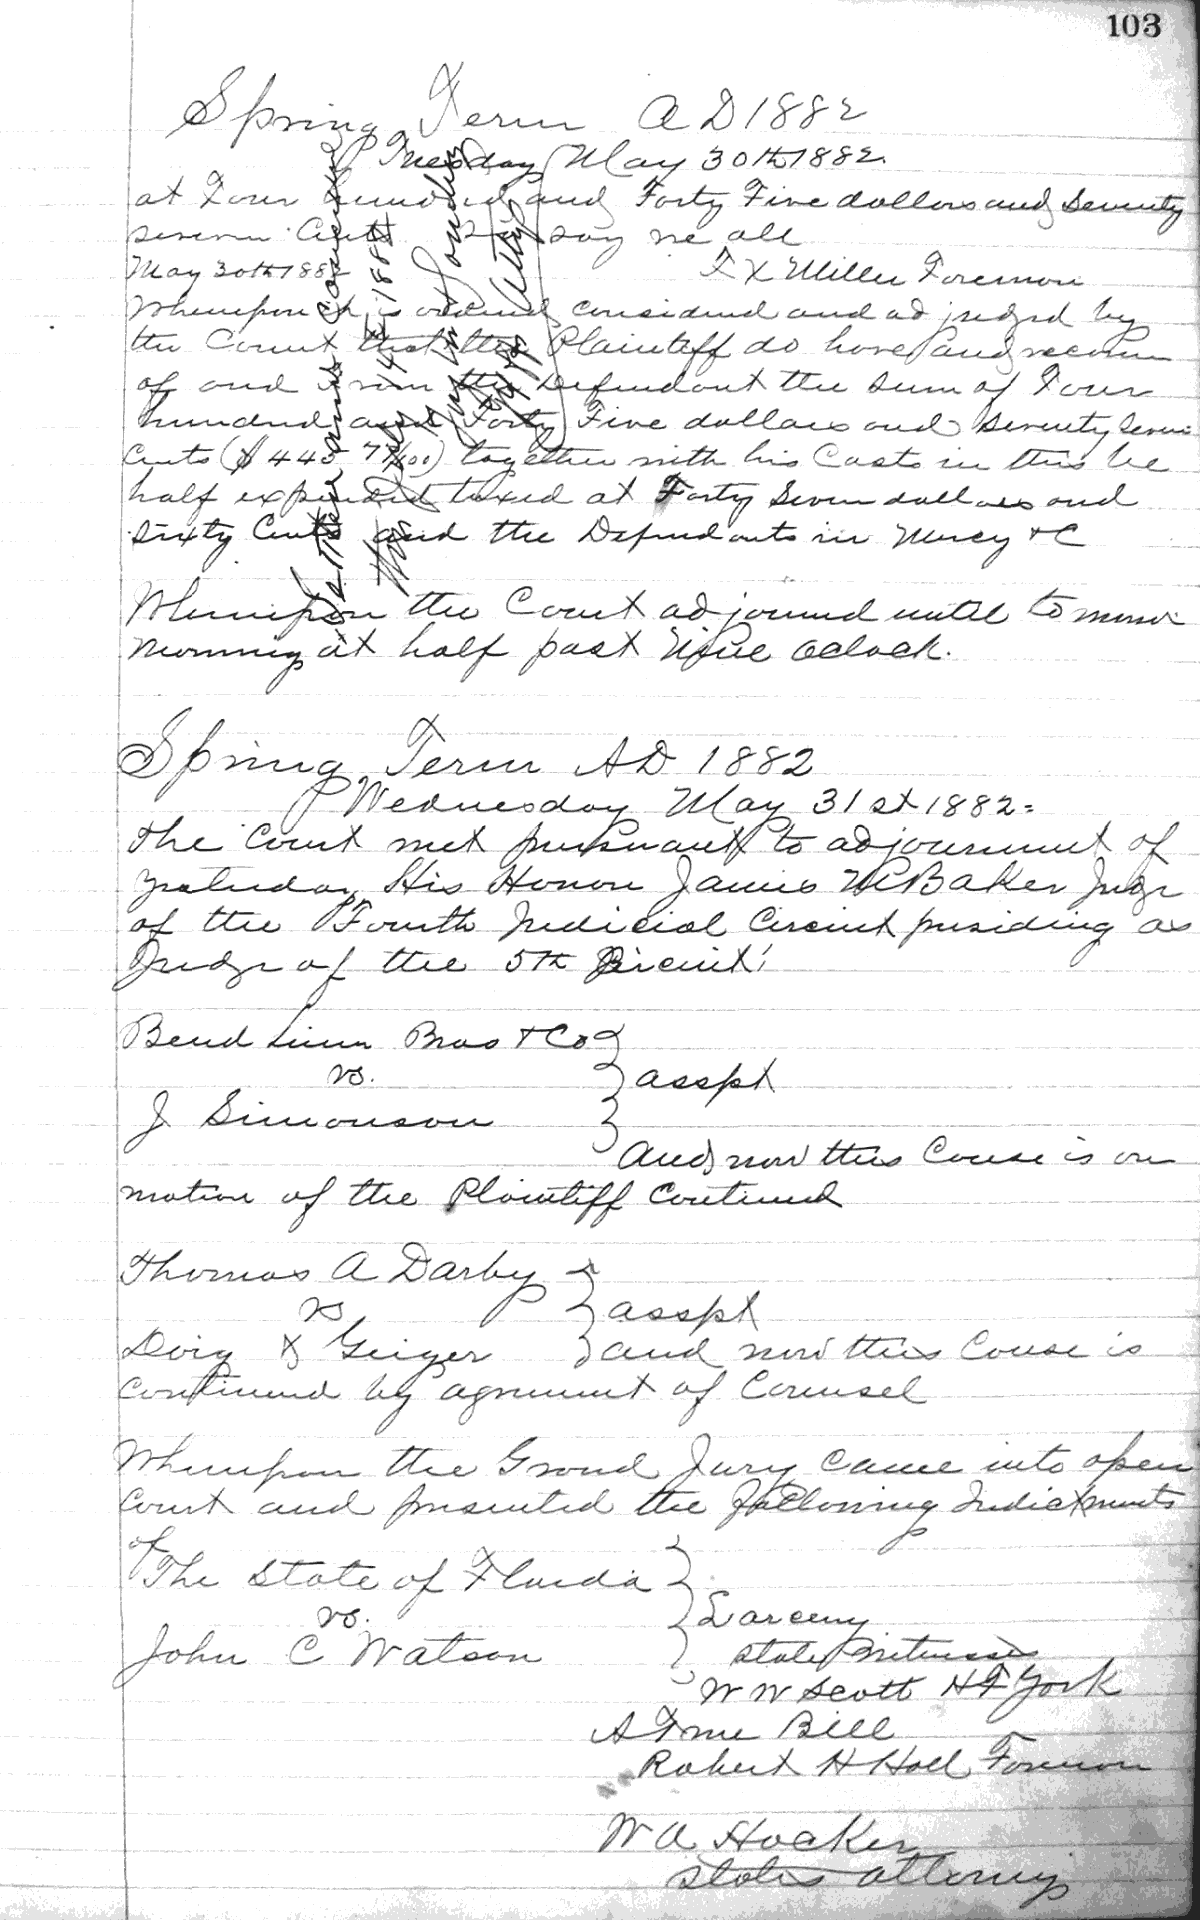 103
Spring Term A D 1882
Tuesday May 30th 1882.
at Four hundred and Forty Five dollars and Seventy
seven Cents So say we all
May 30th 1882 F X Miller Foreman
Whereupon it is ordered considered and adjudged by
the Court that the Plaintiff do have and recover
of and from the Defendant the sum of Four
hundred and Forty Five dollars and Seventy Seven
Cents ($445 77/100) together with his Costs in this be
half expended taxed at Forty Seven dollars and
Sixty Cents and the Defendants in Mercy &C
Whereupon the Court adjourned until to morrow
morning at half past Nine Oclock.
Spring Term AD 1882
Wednesday May 31st 1882.
The Court met pursuant to adjournment of
yesterday His Honor James M Baker Judge
of the Fourth Judicial Circuit presiding as
Judge of the 5th Circuit
Bendheim Bros & Co
vs.
asspt
J Simonson
And now this Cause is on
motion of the Plaintiff Continued
Thomas A Darby
vs
asspt
Doig & Geiger and now this Cause is
Continued by agreement of Counsel
Whereupon the Grand Jury Came into open
Court and presented the following Indictments
of
The State of Florida
vs.
Larceny
John C Watson
State Witnesses
W W Scott H F York
A True Bill
Robert H Hall Foreman
W A Hocker
States attorney